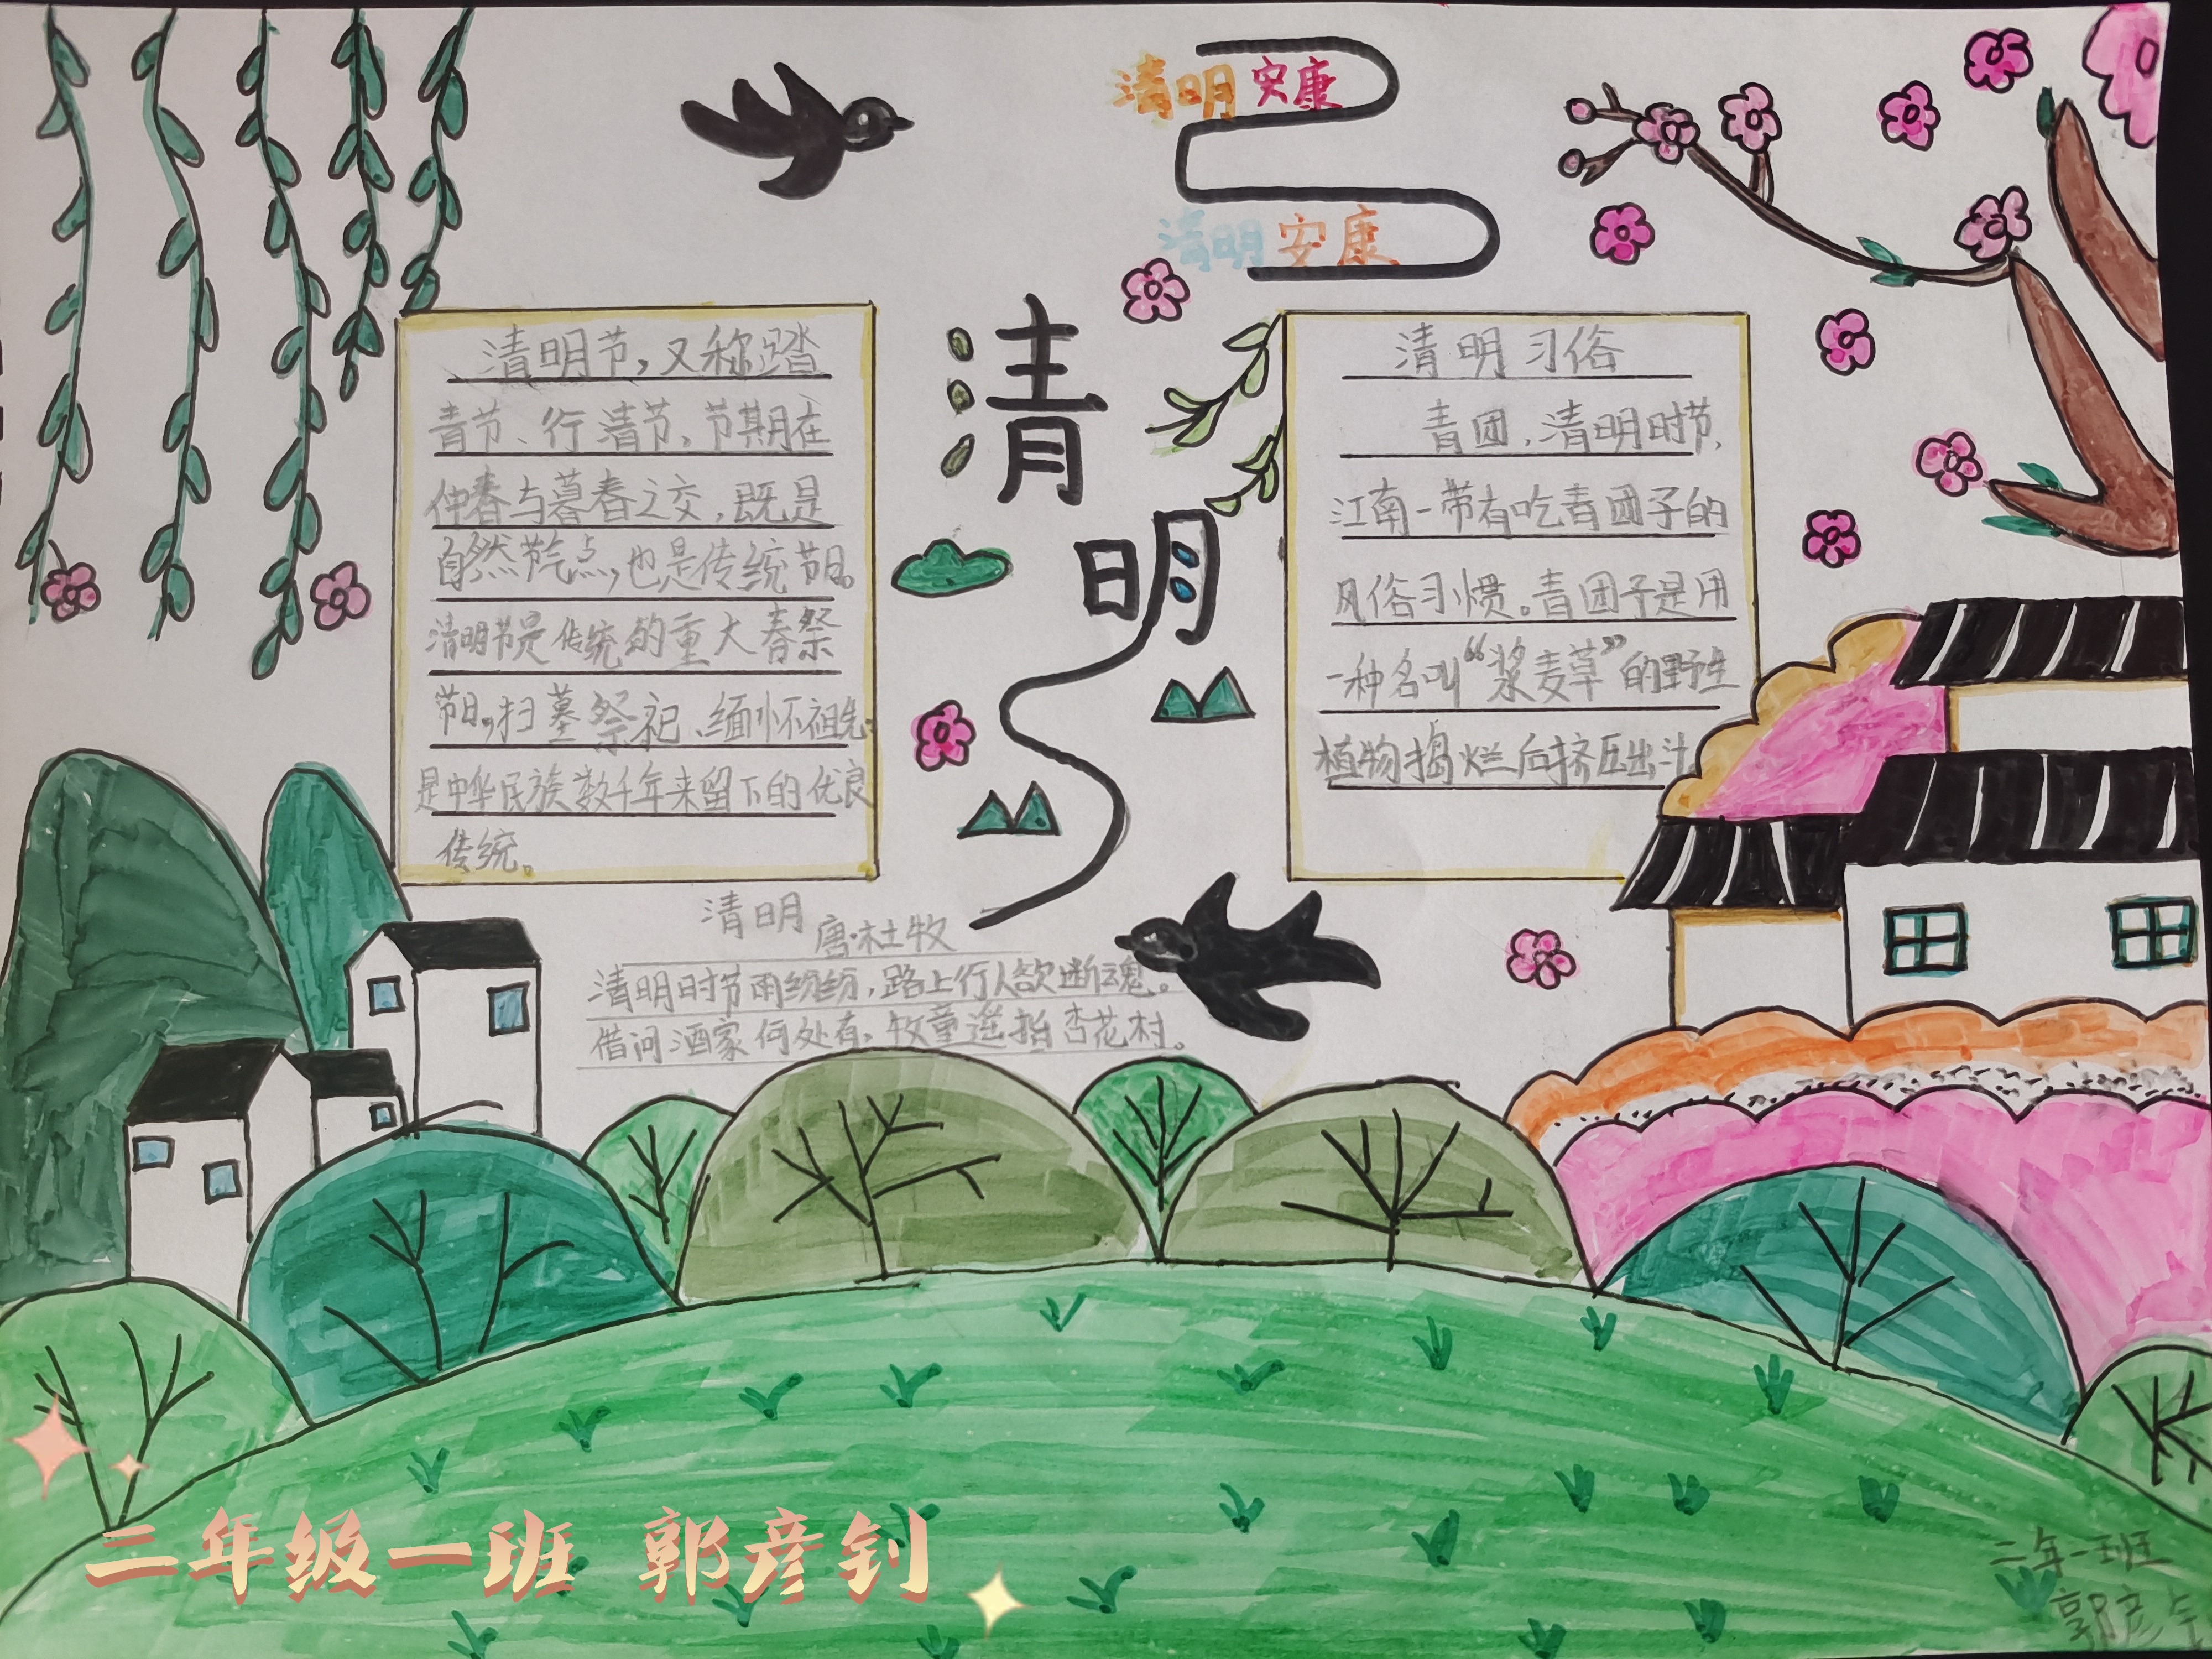 清明安康
清明安康
清明
清明节,又称踏
青节、行清节,节期在
仲春与暮春之交,既是
自然节气点,也是传统节日。
清明节是传统的重大春祭
节日,扫墓祭祀、缅怀祖先,
是中华民族数千年来留下的优良
传统。
清明习俗
青团,清明时节,
江南一带有吃青团子的
风俗习惯。青团子是用
一种名叫“浆麦草”的野生
植物捣烂后挤压出汁
清明
唐·杜牧
清明时节雨纷纷,路上行人欲断魂。
借问酒家何处有,牧童遥指杏花村。
二年级一班 郭彦钊
二年一班
郭彦